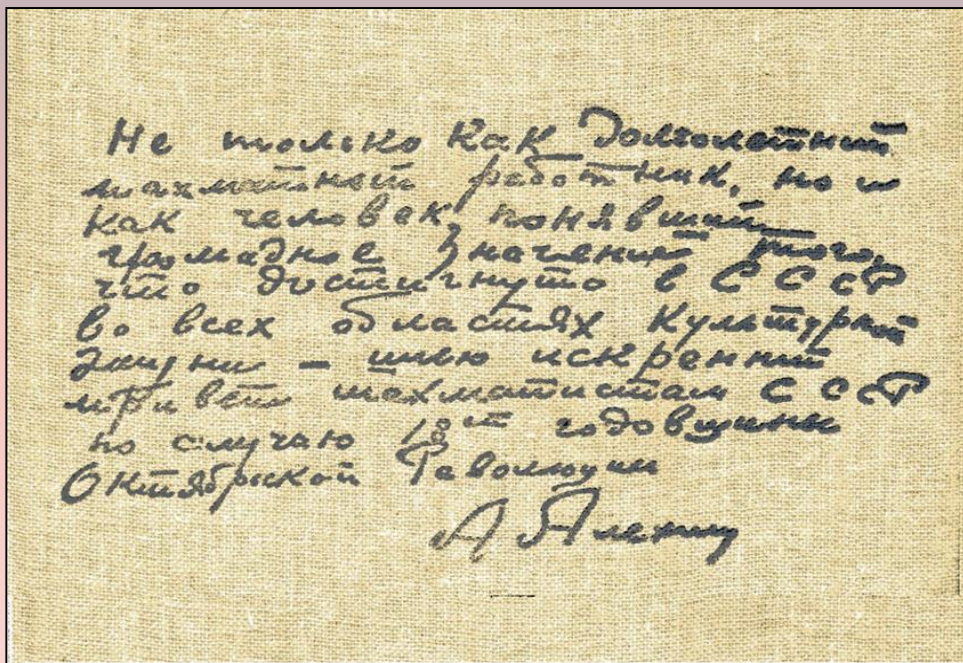 Не только как долголетний
шахматный работник, но и
как человек, понявший
громадное значение того,
что достигнуто в СССР
во всех областях культурной
жизни – шлю искренний
привет шахматистам СССР
по случаю 18ой годовщины
Октябрьской Революции
А Алехин